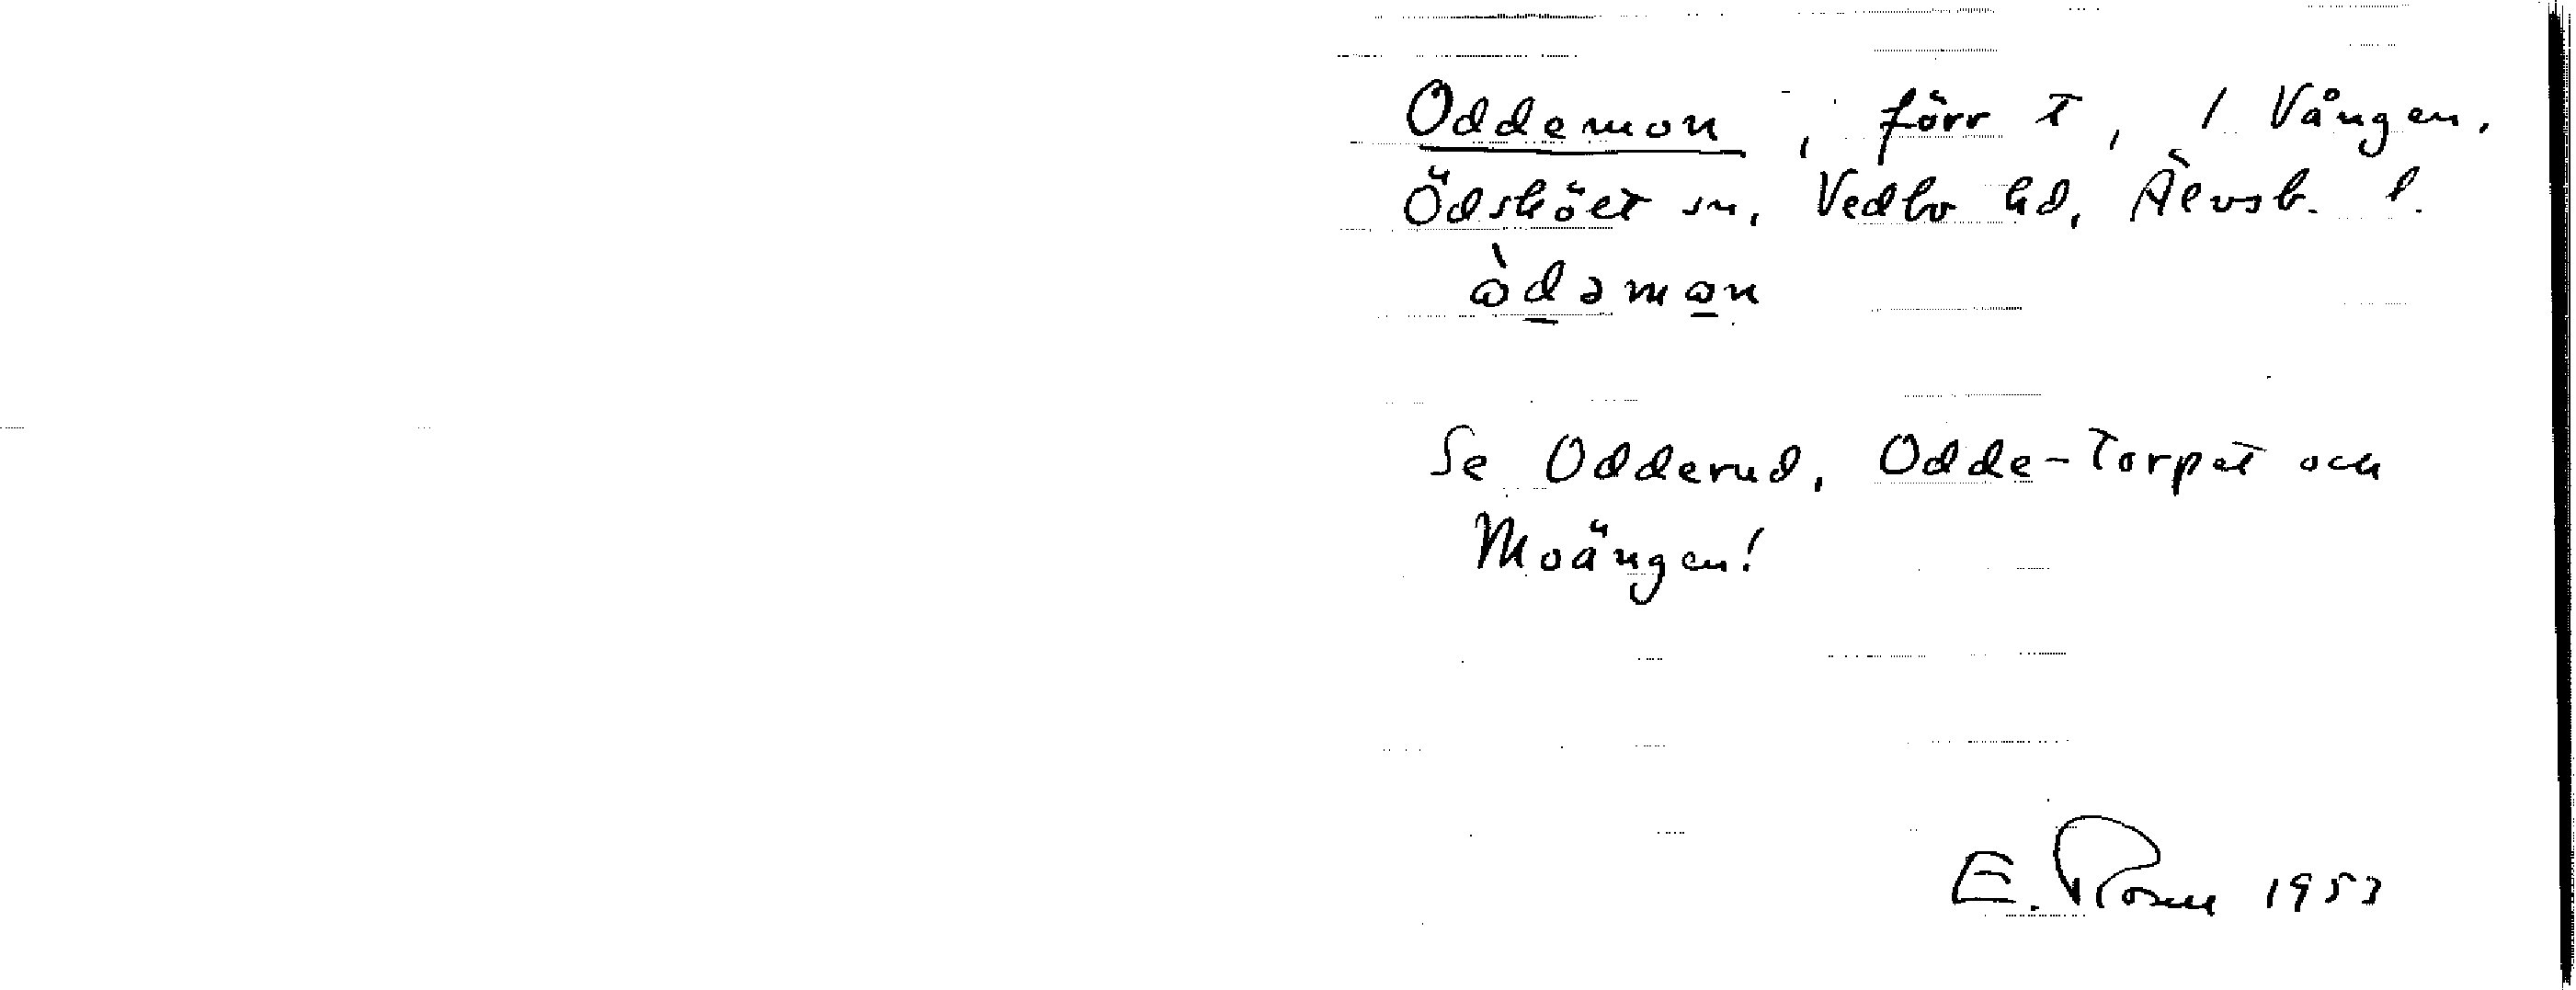 Oddemon, förr t, 1 Vången,
Ödskölt sn, Vedbo hd, Älvsb. l.
òdəmon
Se Odderud, Odde-Torpet och
Moängen!
E. Rosell 1953